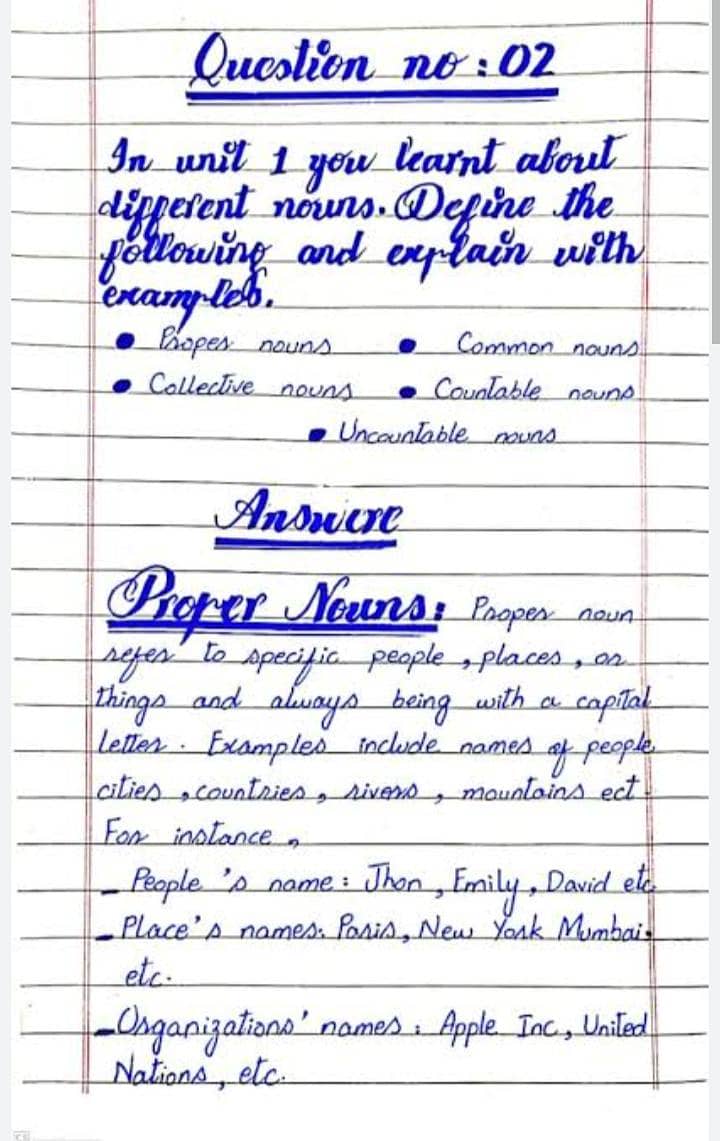 Question no : 02
In unit 1 you learnt about
different nouns. Define the
following and explain with
examples.
• Proper nouns • Common nouns
• Collective nouns • Countable nouns
• Uncountable nouns
Answere
Proper Nouns: Proper noun
refer to specific people, places, or
things and always being with a capital
letter. Examples include names of people
cities, countries, rivers, mountains ect.
For instance,
_ People 's name: Jhon, Emily, David etc
_ Place's names: Paris, New York Mumbai,
etc.
_ Organizations' names: Apple Inc, United
Nations, etc.